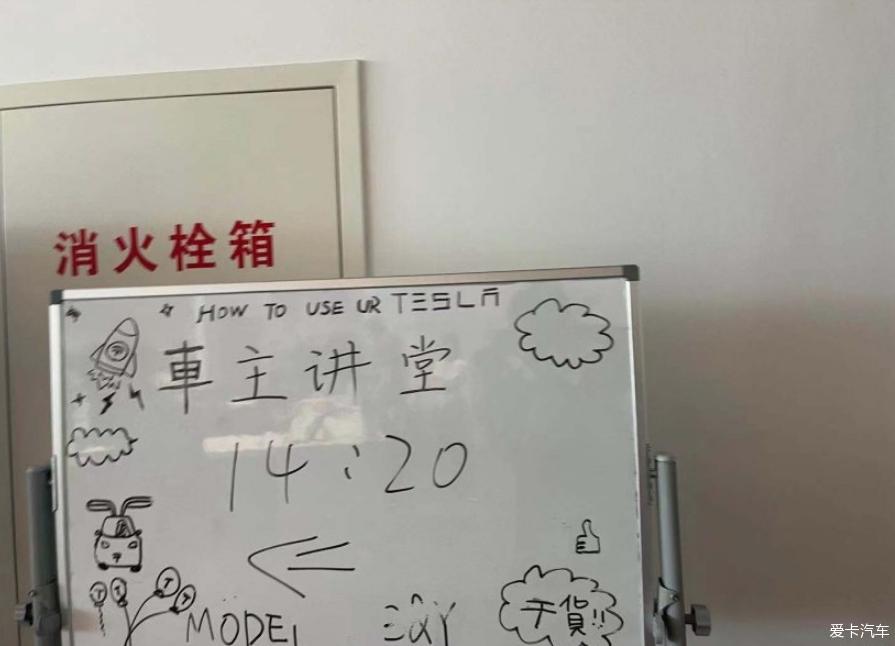 消火栓箱
HOW TO USE UR TESLA
車主讲堂
14:20
MODEL 三&Y
干貨!!
爱卡汽车